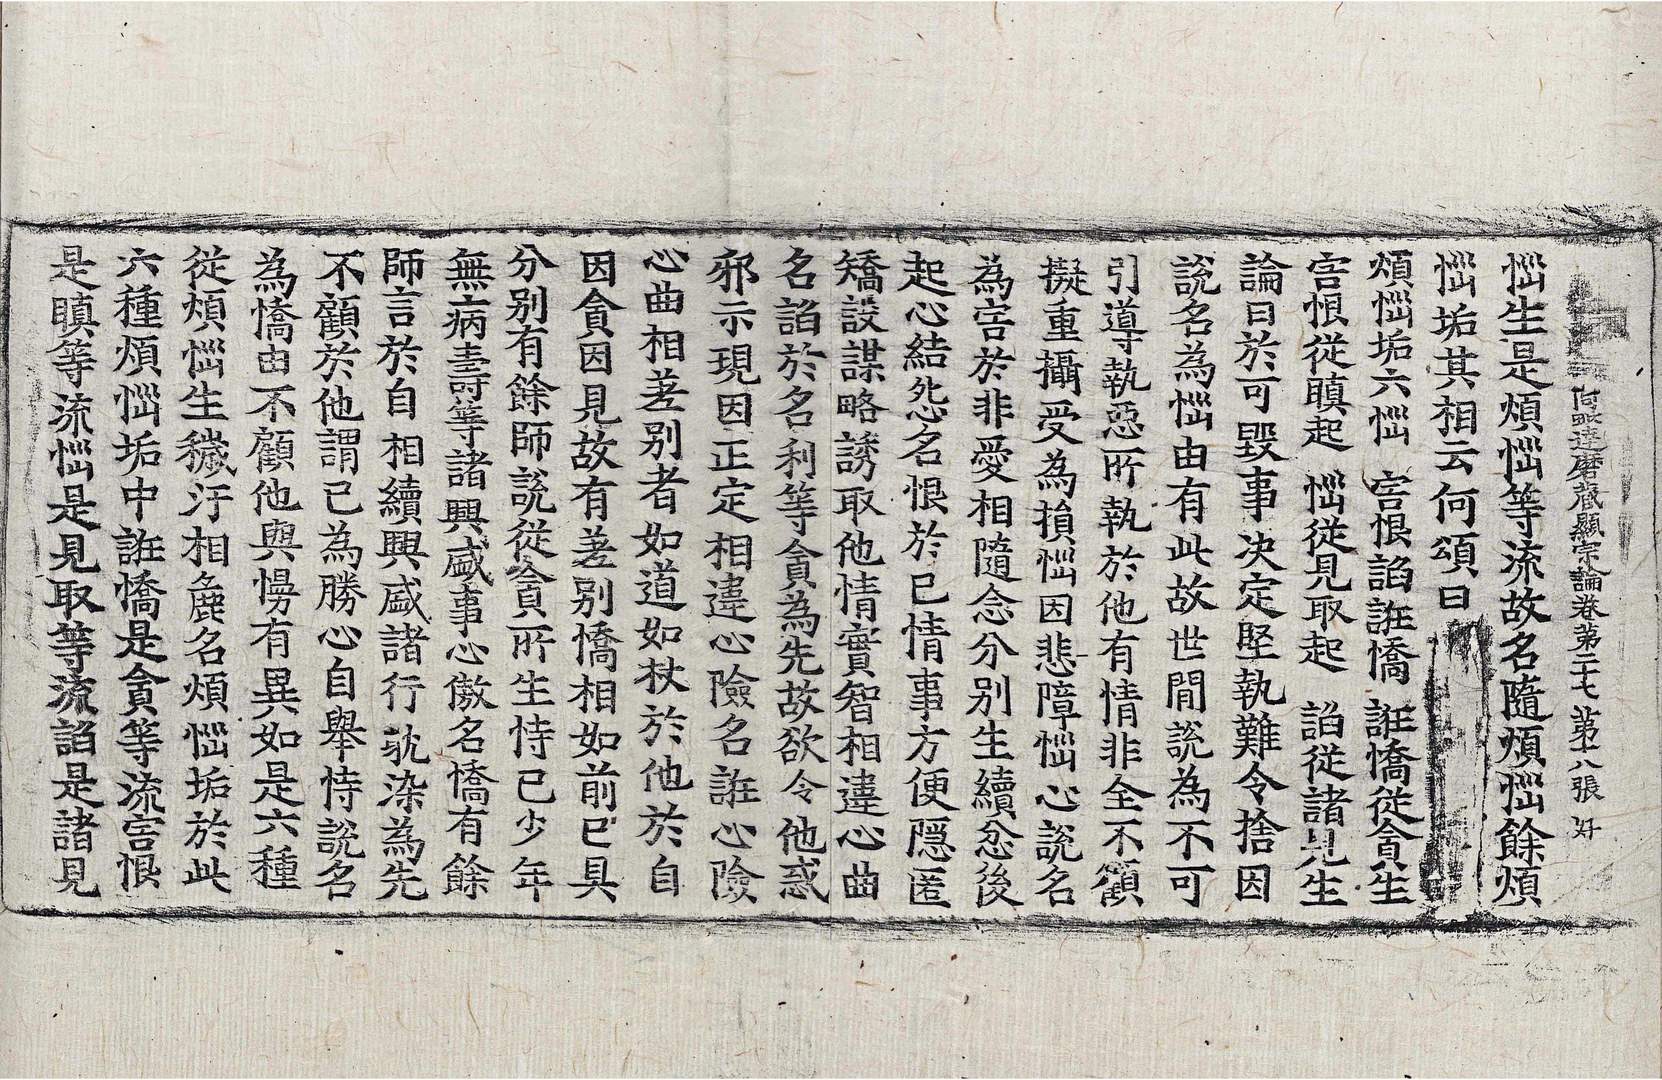 阿毗達磨藏顯宗論卷第二十七 第十八張 好
惱生是煩惱等流故名隨煩惱餘煩
惱垢其相云何頌曰
煩惱垢六惱 害恨諂誑憍 誑憍從貪生
害恨從瞋起 惱從見取起 諂從諸見生
論曰於可毀事決定堅執難令捨因
說名為惱由有此故世閒說為不可
引導執惡所執於他有情非全不顧
擬重攝受為損惱因悲障惱心說名
為害於非愛相隨念分別生續忿後
起心結怨名恨於已情事方便隱匿
矯設謀略誘取他情實智相違心曲
名諂於名利等貪為先故欲令他惑
邪示現因正定相違心險名誑心險
心曲相差別者如道如杖於他於自
因貪因見故有差別憍相如前已具
分別有餘師說從貪所生恃已少年
無病壽等諸興盛事心傲名憍有餘
師言於自相續興盛諸行耽染為先
不顧於他謂已為勝心自舉恃說名
為憍由不顧他與慢有異如是六種
從煩惱生穢汙相麁名煩惱垢於此
六種煩惱垢中誑憍是貪等流害恨
是瞋等流惱是見取等流諂是諸見